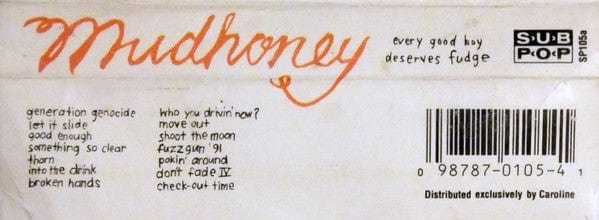 Mudhoney
every good boy
deserves fudge
SUB
POP
SP105a
generation genocide
let it slide
good enough
something so clear
thorn
into the drink
broken hands
who you drivin' now?
move out
shoot the moon
fuzzgun '91
pokin' around
don't fade IV
check-out time
0 98787-0105-4 1
Distributed exclusively by Caroline